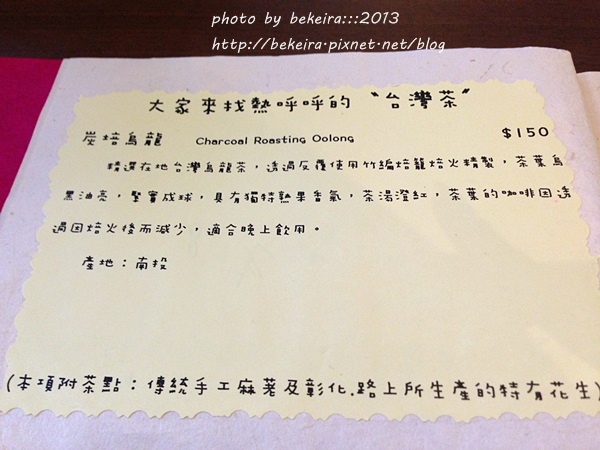 photo by bekeira:::2013
http://bekeira.pixnet.net/blog
大家來找熱呼呼的 "台灣茶"
炭焙烏龍 Charcoal Roasting Oolong $150
精選在地台灣烏龍茶，透過反覆使用竹編焙籠焙火精製，茶葉烏
黑油亮，緊實成球，具有獨特熟果香氣，茶湯澄紅，茶葉的咖啡因透
過因焙火後而減少，適合晚上飲用。
產地：南投
(本項附茶點：傳統手工麻荖及彰化.路上所生產的特有花生)